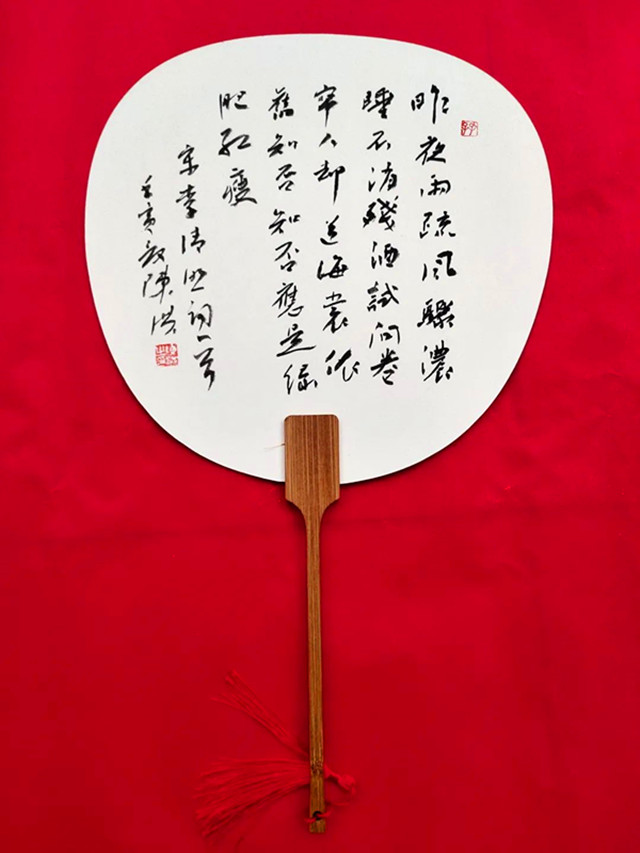 昨夜雨疏風驟濃
睡不消殘酒試問卷
帘人却道海棠依
舊知否知否應是緑
肥紅瘦
宋李清照詞一首
壬寅陳洪